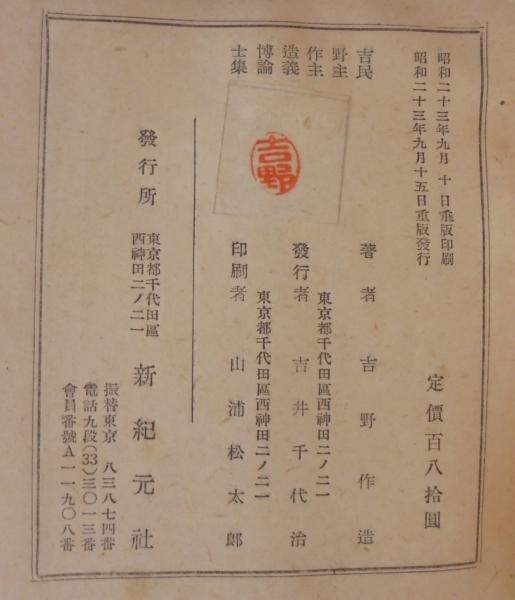 昭和二十三年九月 十 日重版印刷
昭和二十三年九月十五日重版發行
定價百八拾圓
吉民
野主
作主
造義
博論
士集
吉野
著者 吉野作造
東京都千代田區西神田二ノ二一
發行者 吉井千代治
東京都千代田區西神田二ノ二一
印刷者 山浦松太郎
發行所
東京都千代田區
西神田二ノ二一
新紀元社
振替東京 八三八七四番
電話九段(33)三〇一三番
會員番號A一一九〇八番